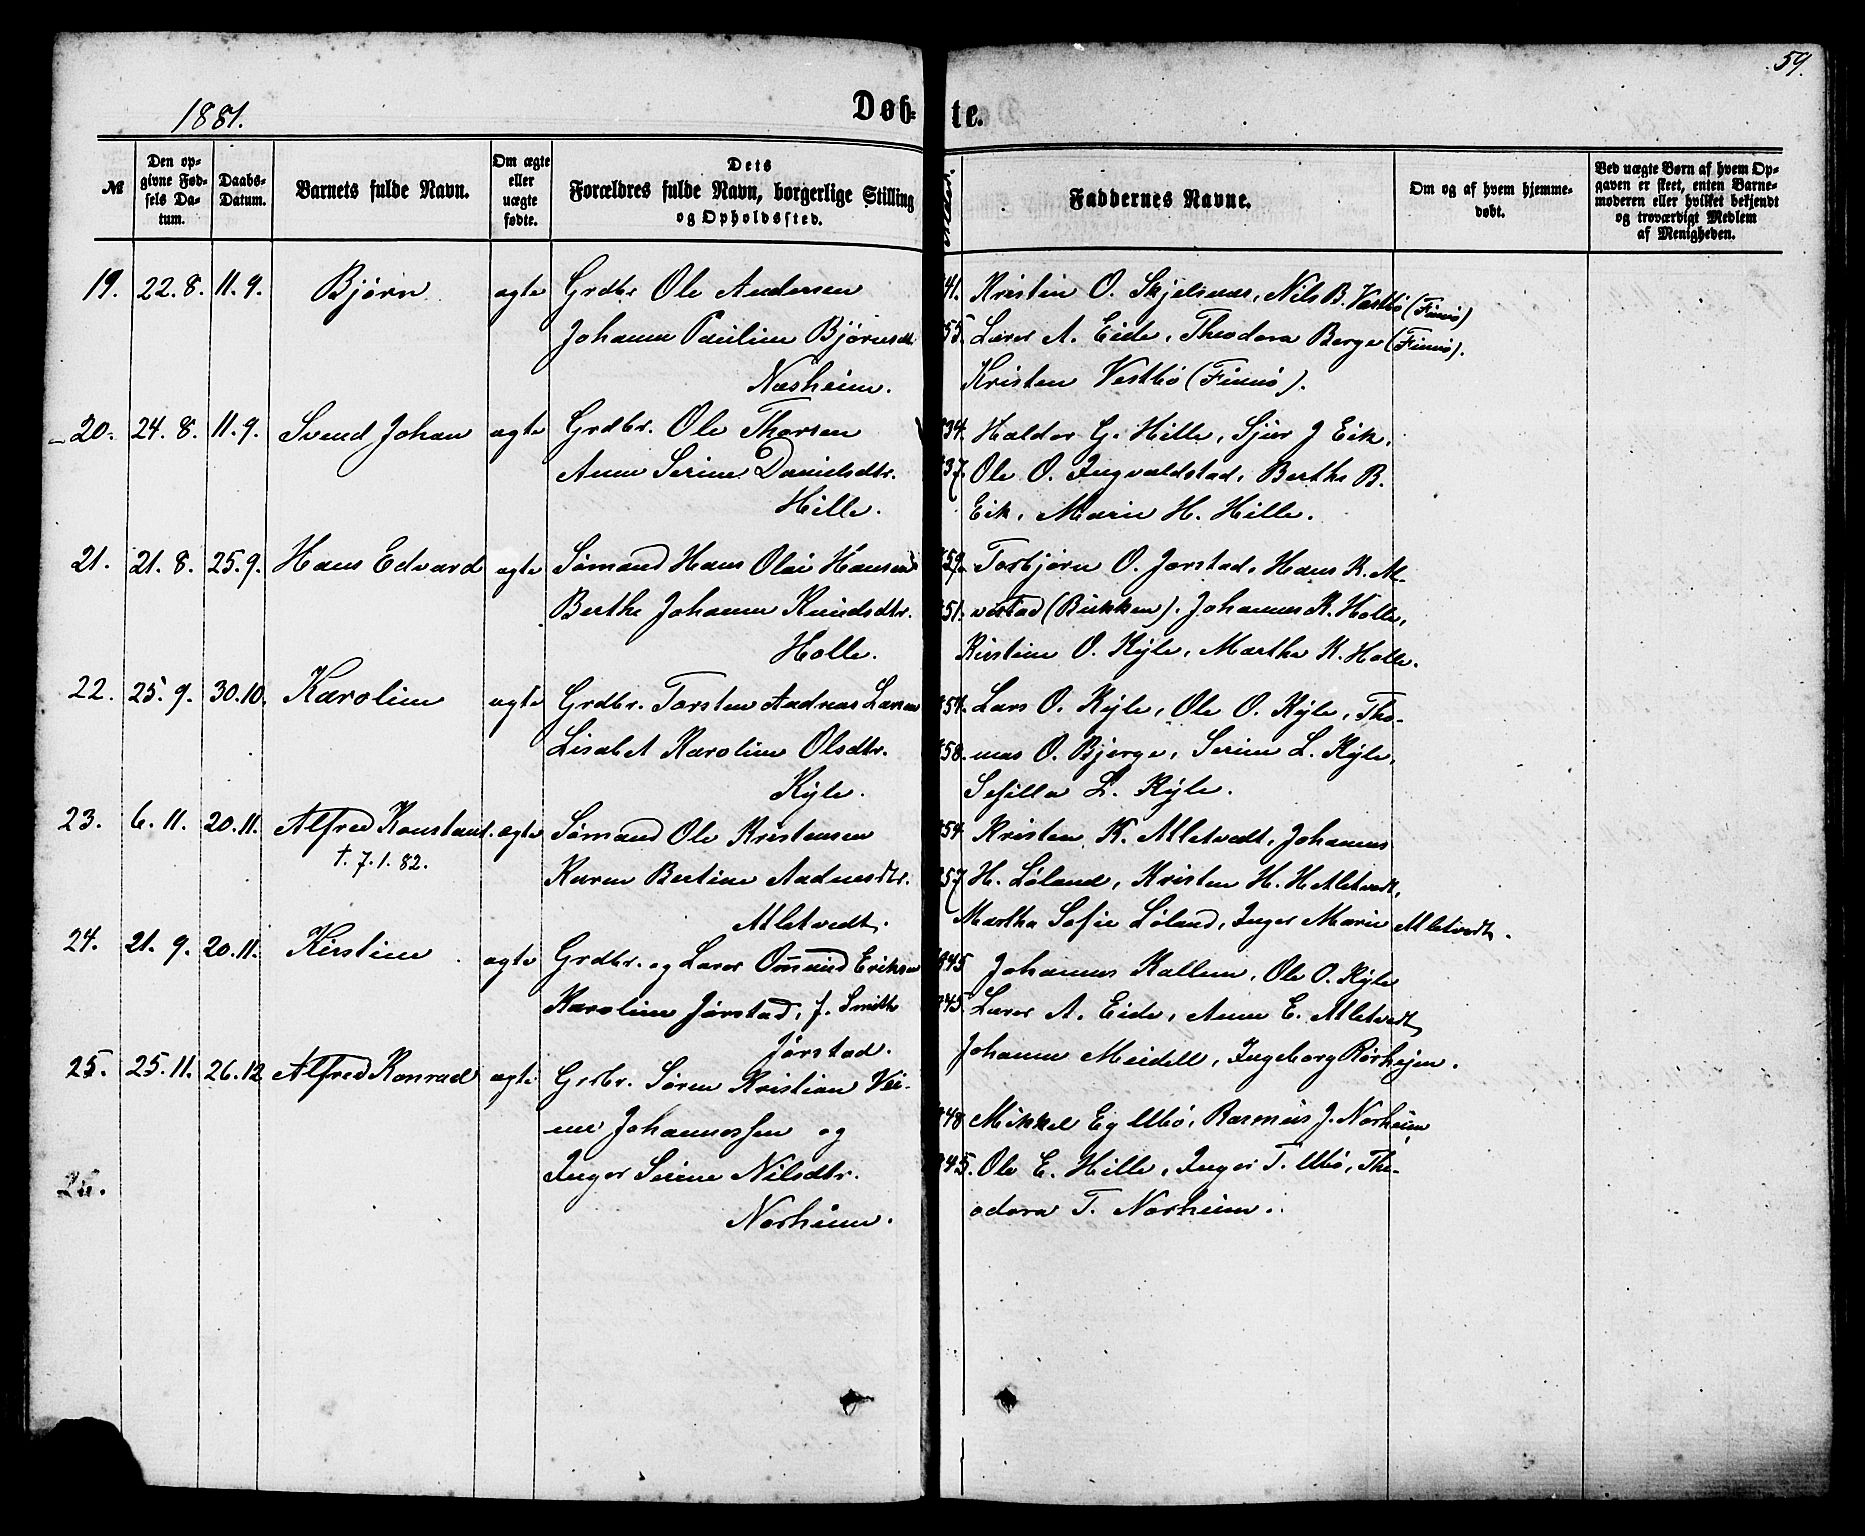 59.
1881.
Døb-te.
№
Den opgivne Fødsels Datum.
Daabs-Datum.
Barnets fulde Navn.
Om ægte eller uægte fødte.
Dets Forældres fulde Navn, borgerlige Stilling og Opholdssted.
Faddernes Navne.
Om og af hvem hjemmedøbt.
Ved uægte Børn af hvem Opgaven er skeet, enten Barnemoderen eller hvilket bekjendt og troværdigt Medlem af Menigheden.
19. 22.8. 11.9. Bjørn ægte Grdbr Ole Andersen 41. Kristen O. Skjelsnes, Nils B. Vestbø (Finnø)
Johanne Pauline Bjørnsdt. 55. Lærer A. Eide, Theodora Berge (Finnø).
Næsheim. Kristen Vestbø (Finnø).
20. 24.8. 11.9. Svend Johan ægte Grdbr. Ole Thorsen 34. Haldor G. Hille, Sjur J Eik,
Anne Serine Danielsdtr. 37. Ole O. Ingvaldstad, Berthe B.
Hille. Eik, Marie H. Hille.
21. 21.8. 25.9. Hans Edvard ægte Sømand Hans Olai Hansen 59. Torbjørn O. Jørstad, Hans K. Al-
Berthe Johanne Knudsdtr. 51. vestad (Bukken). Johannes K. Holle,
Holle. Kirstine O. Kyle, Marthe K. Holle.
22. 25.9. 30.10. Karoline ægte Grdbr. Torsten Aadnas Larsen 54. Lars O. Kyle, Ole O. Kyle, Tho-
Lisabet Karoline Olsdtr. 58. mas O. Bjerge, Serine L. Kyle,
Kyle. Sesilla L. Kyle.
23. 6.11. 20.11. Alfred Konstant. ægte Sømand Ole Kristensen 54. Kristen K. Atletvedt, Johannes
†. 7.1.82.
Karen Bertine Aadnesdtr. 57 H. Løland, Kristen H. H Atletvedt,
Atletvedt. Martha Sofie Løland, Inger Marie Atletvedt.
24. 21.9. 20.11. Kirstine ægte Grdbr. og Lærer Omund Eriksen 845 Johannes Kallem, Ole O. Kyle
Karoline Jørstad, f. Smith 45. Lærer A. Eide, Anne E. Atletvedt
Jørstad. Johanne Meidell, Ingeborg Rørhejen.
25. 25.11. 26.12 Alfred Konrad ægte Grdbr. Søren Kristian Vei- 48 Mikkel E Ubø, Rasmus J. Norheim
ne Johannessen og 45. Ole E. Hille, Inger T. Ubø, The-
Inger Serine Nilsdtr. odora T. Norheim.
Norheim.
26.